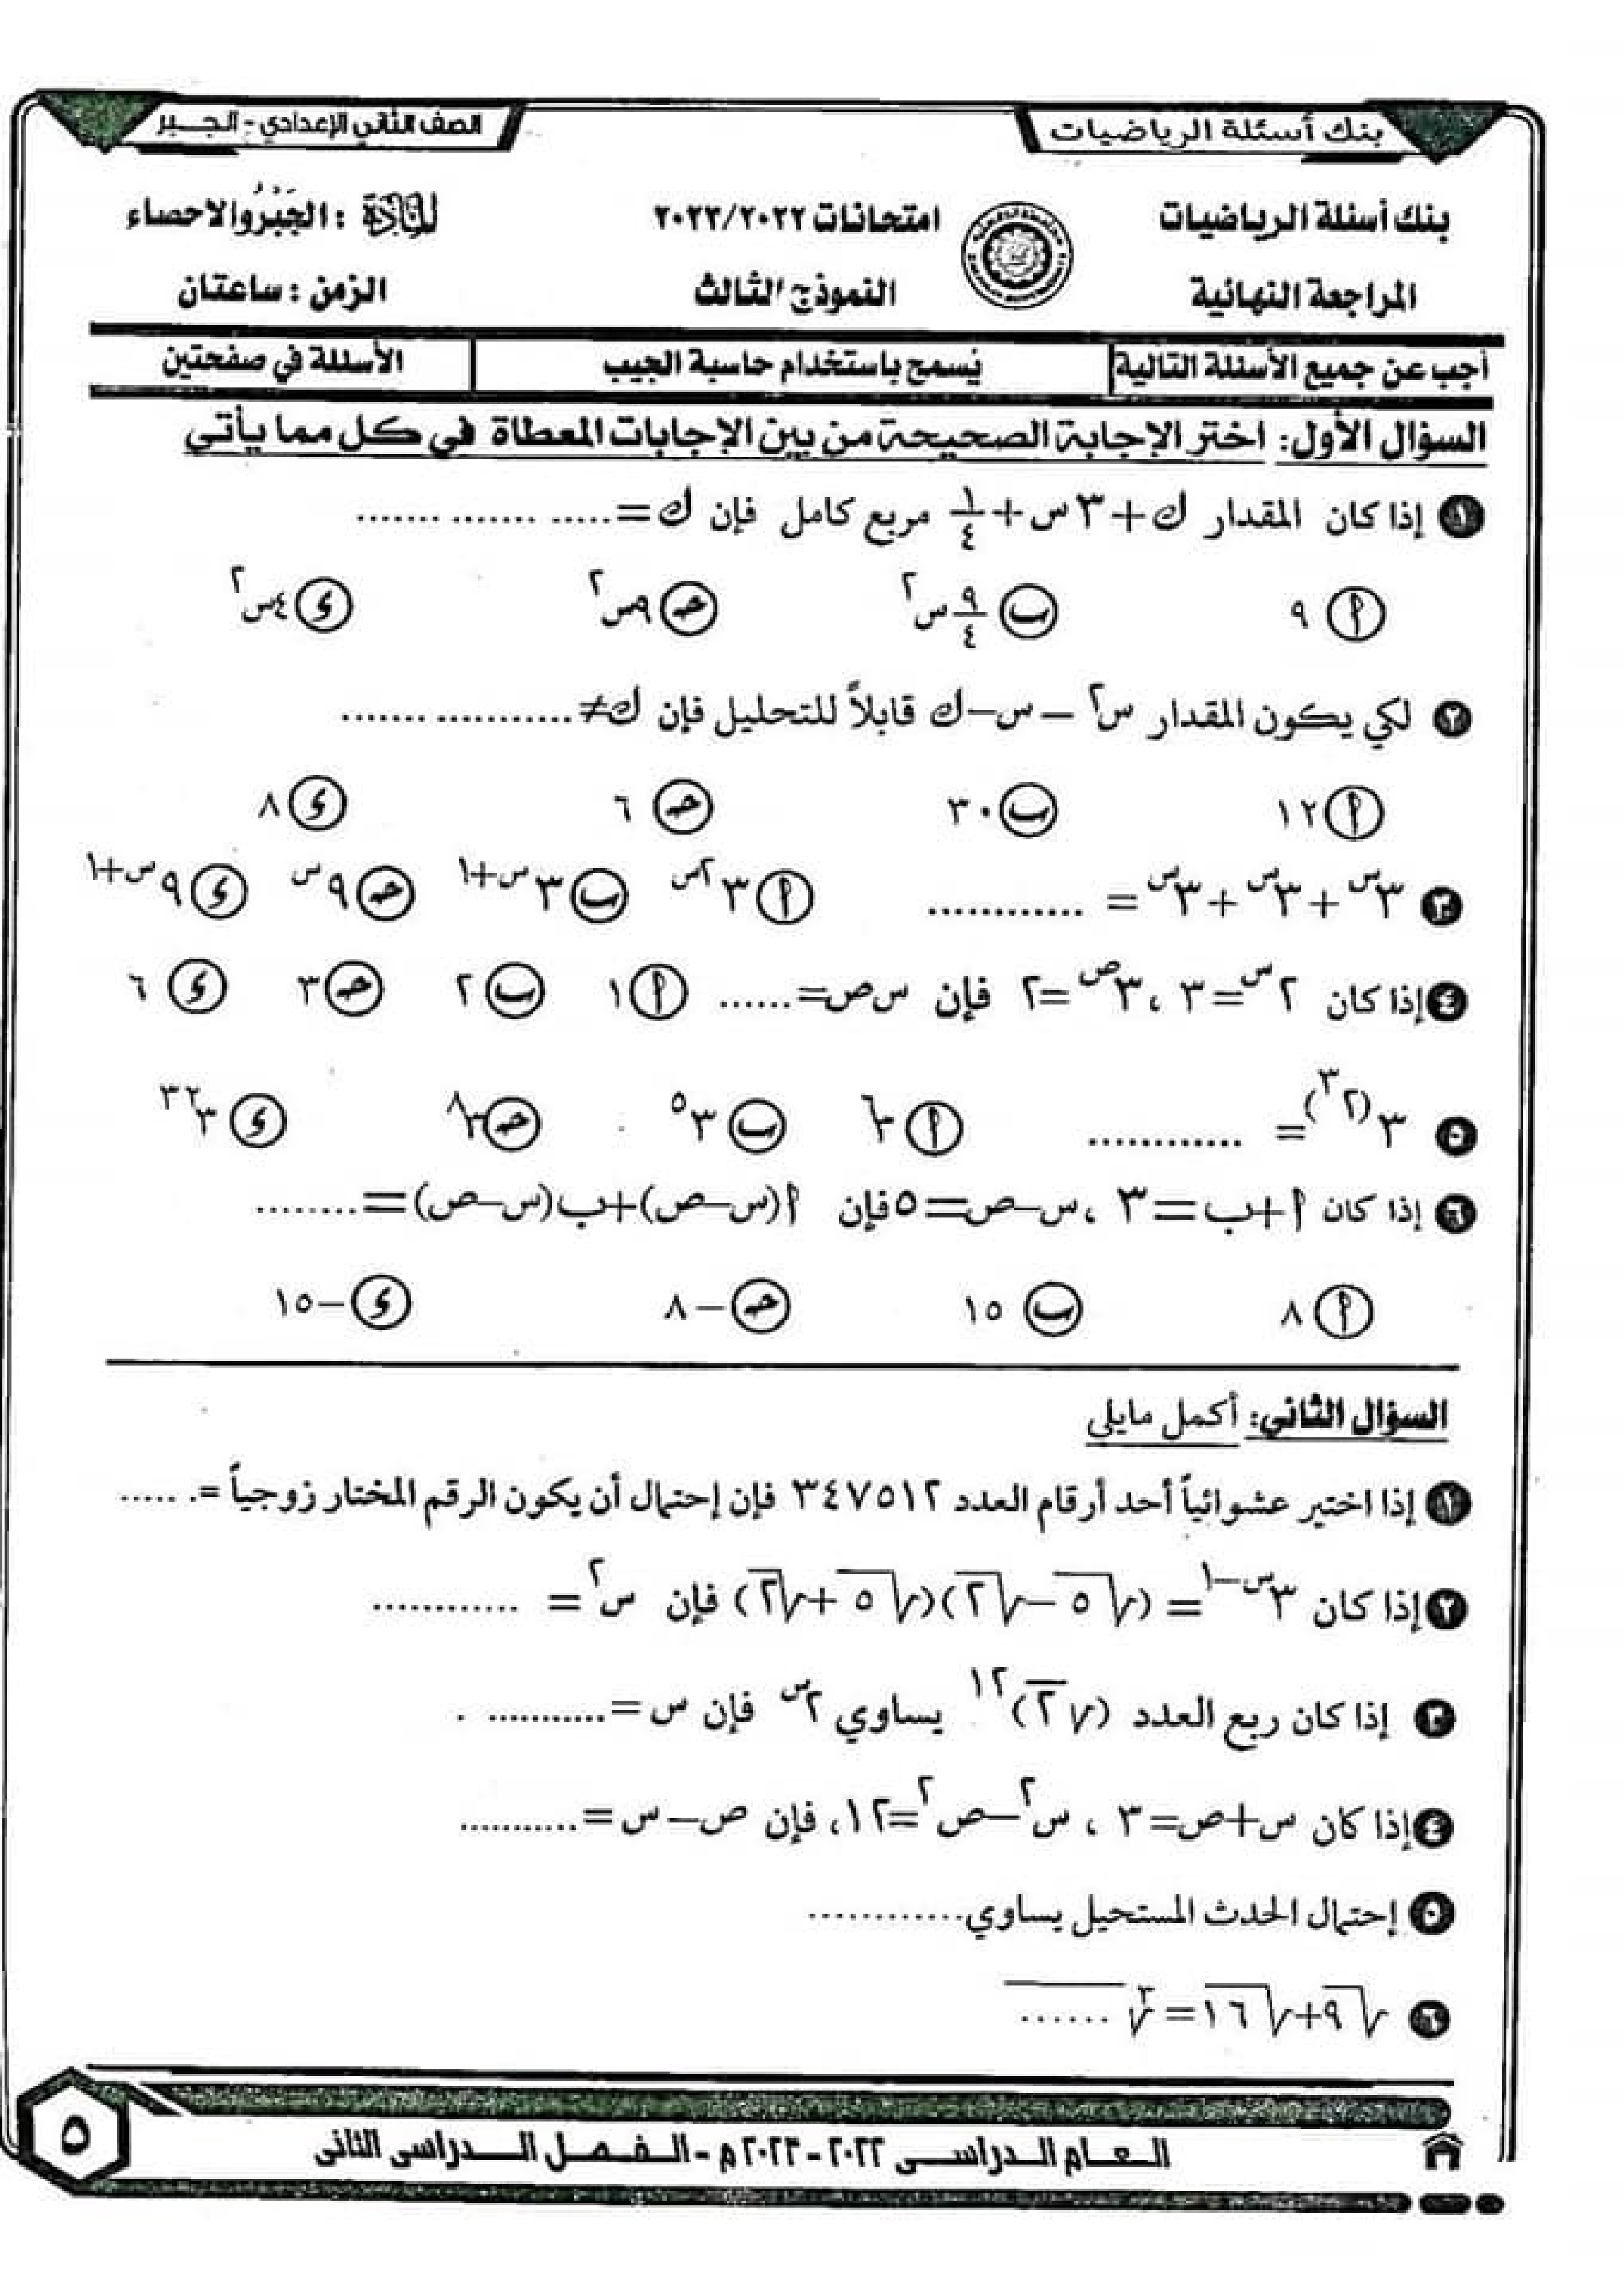 بنك أسئلة الرياضيات
الصف الثاني الإعدادي - الجبر
بنك أسئلة الرياضيات امتحانات ٢٠٢٢/٢٠٢٣ المادة : الجبر والاحصاء
المراجعة النهائية النموذج الثالث الزمن : ساعتان
أجب عن جميع الأسئلة التالية يُسمح باستخدام حاسبة الجيب الأسئلة في صفحتين
السؤال الأول: اختر الإجابة الصحيحة من بين الإجابات المعطاة في كل مما يأتي
١ إذا كان المقدار ك + ٣س + ١/٤ مربع كامل فإن ك = ..... ....... .......
أ ٩ ب ٩/٤ س٢ جـ ٩س٢ د ٤س٢
٢ لكي يكون المقدار س٢ – س – ك قابلاً للتحليل فإن ك ≠ ........... .......
أ ١٢ ب ٣٠ جـ ٦ د ٨
٣ ٣^س + ٣^س + ٣^س = ............ أ ٣^٢س ب ٣^س+١ جـ ٩^س د ٩^س+١
٤ إذا كان ٢^س = ٣ ، ٣^ص = ٢ فإن س ص = ...... أ ١ ب ٢ جـ ٣ د ٦
٥ ٣^(٢^٣) = ............ أ ٣^٦ ب ٣^٥ جـ ٣^٨ د ٣^٣٢
٦ إذا كان أ + ب = ٣ ، س – ص = ٥ فإن أ(س – ص) + ب(س – ص) = ........
أ ٨ ب ١٥ جـ – ٨ د – ١٥
السؤال الثاني: أكمل مايلي
١ إذا اختير عشوائياً أحد أرقام العدد ٣٤٧٥١٢ فإن إحتمال أن يكون الرقم المختار زوجياً = . .....
٢ إذا كان ٣^س–١ = (√٥ – √٢)(√٥ + √٢) فإن س٢ = ............
٣ إذا كان ربع العدد (√٢)^١٢ يساوي ٢^س فإن س = ........... .
٤ إذا كان س + ص = ٣ ، س٢ – ص٢ = ١٢، فإن ص – س = ...........
٥ إحتمال الحدث المستحيل يساوي............
٦ √٩ + √١٦ = ∛......
العام الدراسى ٢٠٢٢ - ٢٠٢٣ م - الفصل الدراسى الثانى
٥